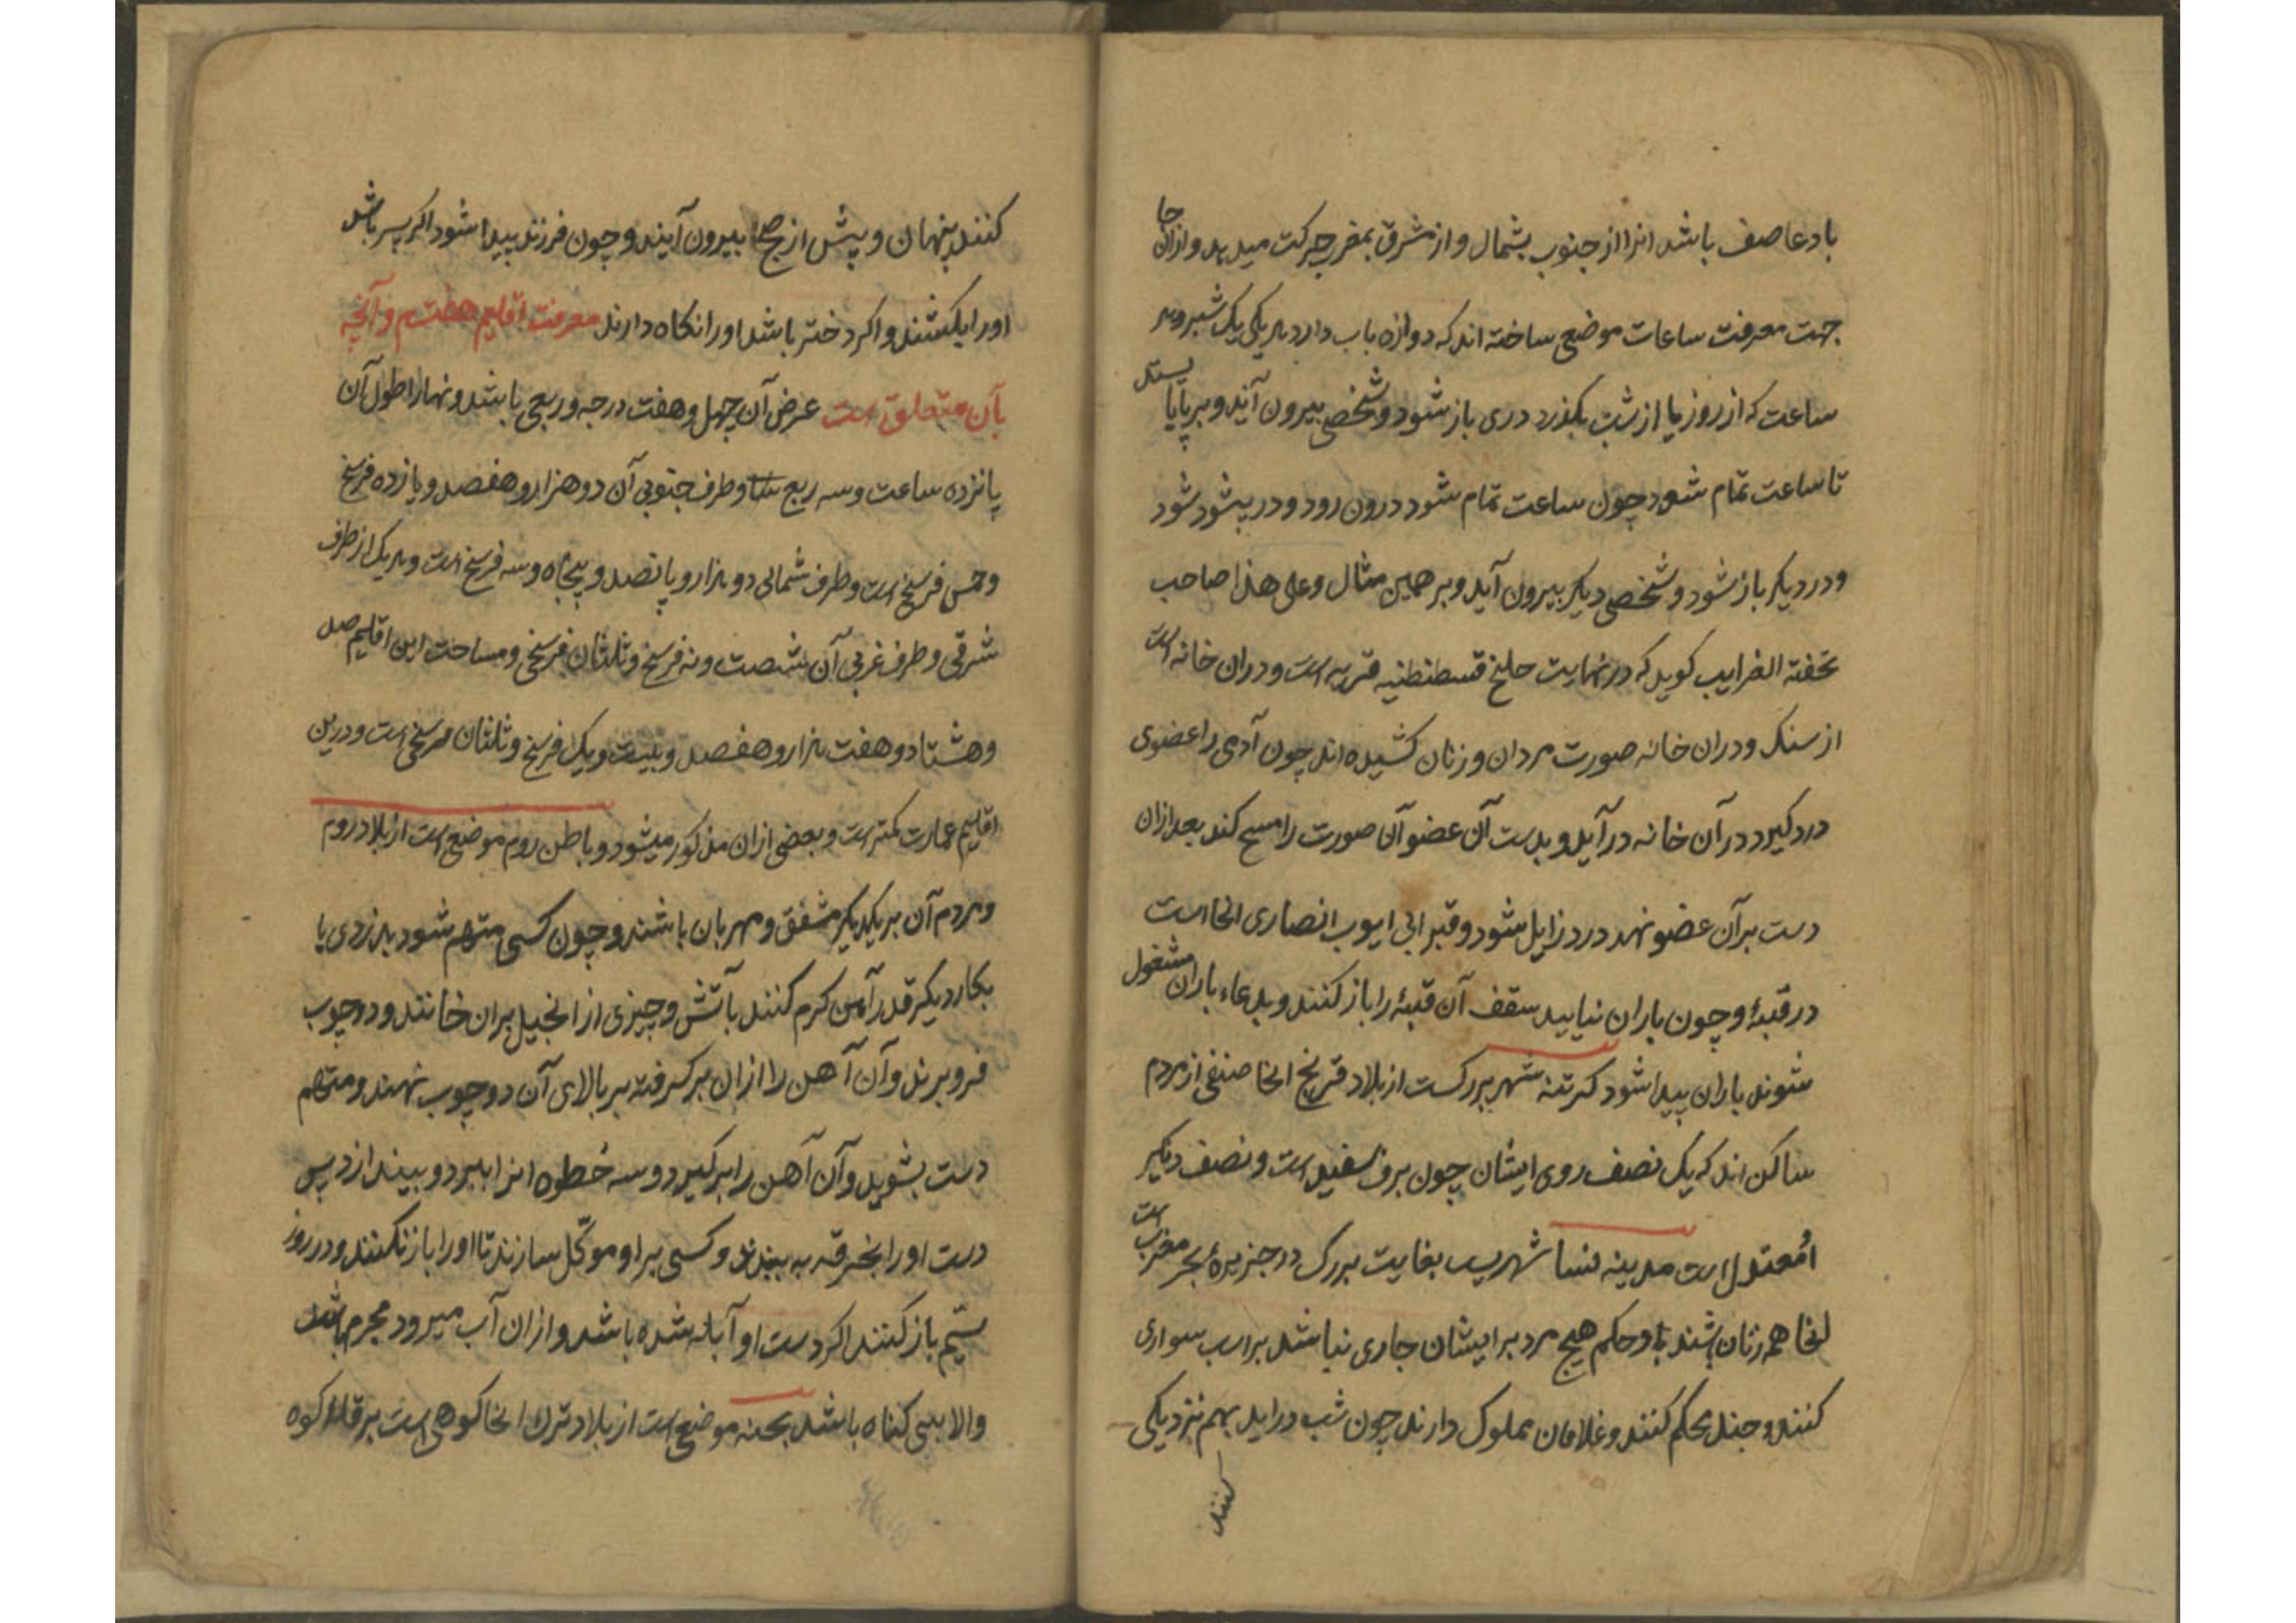 باد عاصف باشد انرا از جنوب بشمال و از مشرق بمغرب حرکت میدهد و ازان جا
جهت معرفت ساعات موضع ساخته اند که دوازه باب دارد هر یکی یک شبر و هر
ساعت که از روز یا از شب بگذرد دری باز شود و شخصی بیرون آید و بر پایا یستد
تا ساعت تمام شود چون ساعت تمام شود درون رود و در پشود شود
و در دیکر باز شود و شخصی دیکر بیرون آید و بر همین مثال و علی هذا صاحب
تحفته الغرایب کوید که در نهایت حلیخ قسطنطنیه قریه است و دران خانه است
از سنک و دران خانه صورت مردان و زنان کشیده اند چون آدمی را عضوی
درد کیرد در آن خانه در آید و بدست آن عضو آن صورت را مسح کند بعد ازان
دست بر آن عضو نهد درد زایل شود و قبر ابی ایوب انصاری انجا است
در قبهٔ و چون باران نیاید سقف آن قبهٔ را باز کنند و بدعاء باران مشغول
شوند باران پیدا شود کرتنه شهر بزرکست از بلاد فرنج انجا صنفی از مردم
ساکن اند که یک نصف روی ایشان چون برف سفید است و نصف دیکر
معتدل است مدینه نسا شهریست بغایت بزرک در جزیرهٔ بحر مغرب است
انجا همه زنان باشند و حکم هیچ مرد بر ایشان جاری نباشد بر اسب سواری
کنند و جند محکم کنند و غلامان مملوک دارند چون شب در اید بهم نزدیکی
کنند
کنند پنهان و پیش از صبح بیرون آیند و چون فرزند پیدا شود اکر پسر باشد
اورا بکشند و اکر دختر باشد اورا نکاه دارند معرفت اقلیم هفتم و آنچه
بآن متعلق است عرض آن چهل و هفت درجه و ربعی باشد و نهار اطول آن
پانزده ساعت و سه ربع و طرف جنوبی آن دو هزار و هفصد و یازده فرسخ
و خمس فرسخ است و طرف شمالی دو هزار و پانصد و پنجاه و سه فرسخ است و هر یک از طرف
شرقی و طرف غربی آن شصت و نه فرسخ و ثلثان فرسخی و مساحت این اقلیم صد
و هشتاد و هفت هزار و هفصد و بیست و یک فرسخ و ثلثان فرسخی است و درین
اقلیم عمارت کمتر است و بعضی ازان مذکور میشود و باطن روم موضع است از بلاد روم
و مردم آن بر یکدیکر مشفق و مهربان باشند و چون کسی متهم شود بدزدی یا
بکار دیکر قدر آهن کرم کنند بآتش و چیزی از انجیل بران خانند و دو چوب
فرو برند و آن آهن را ازان برکرفته بر بالای آن دو چوب نهند و متهم
دست بشوید و آن آهن را برکیرد و سه خطوه انرا ببرد و بیندازد پس
دست اورا بخرقه به بندند و کسی بر او موکّل سازند تا اورا باز نکنند و در روز
سیّم باز کنند اکر دست او آبله شده باشد و ازان آب میرود مجرم باشد
والا بی کناه باشد بجنه موضع است از بلاد ترک انجا کوهی است بر قلهٔ کوه